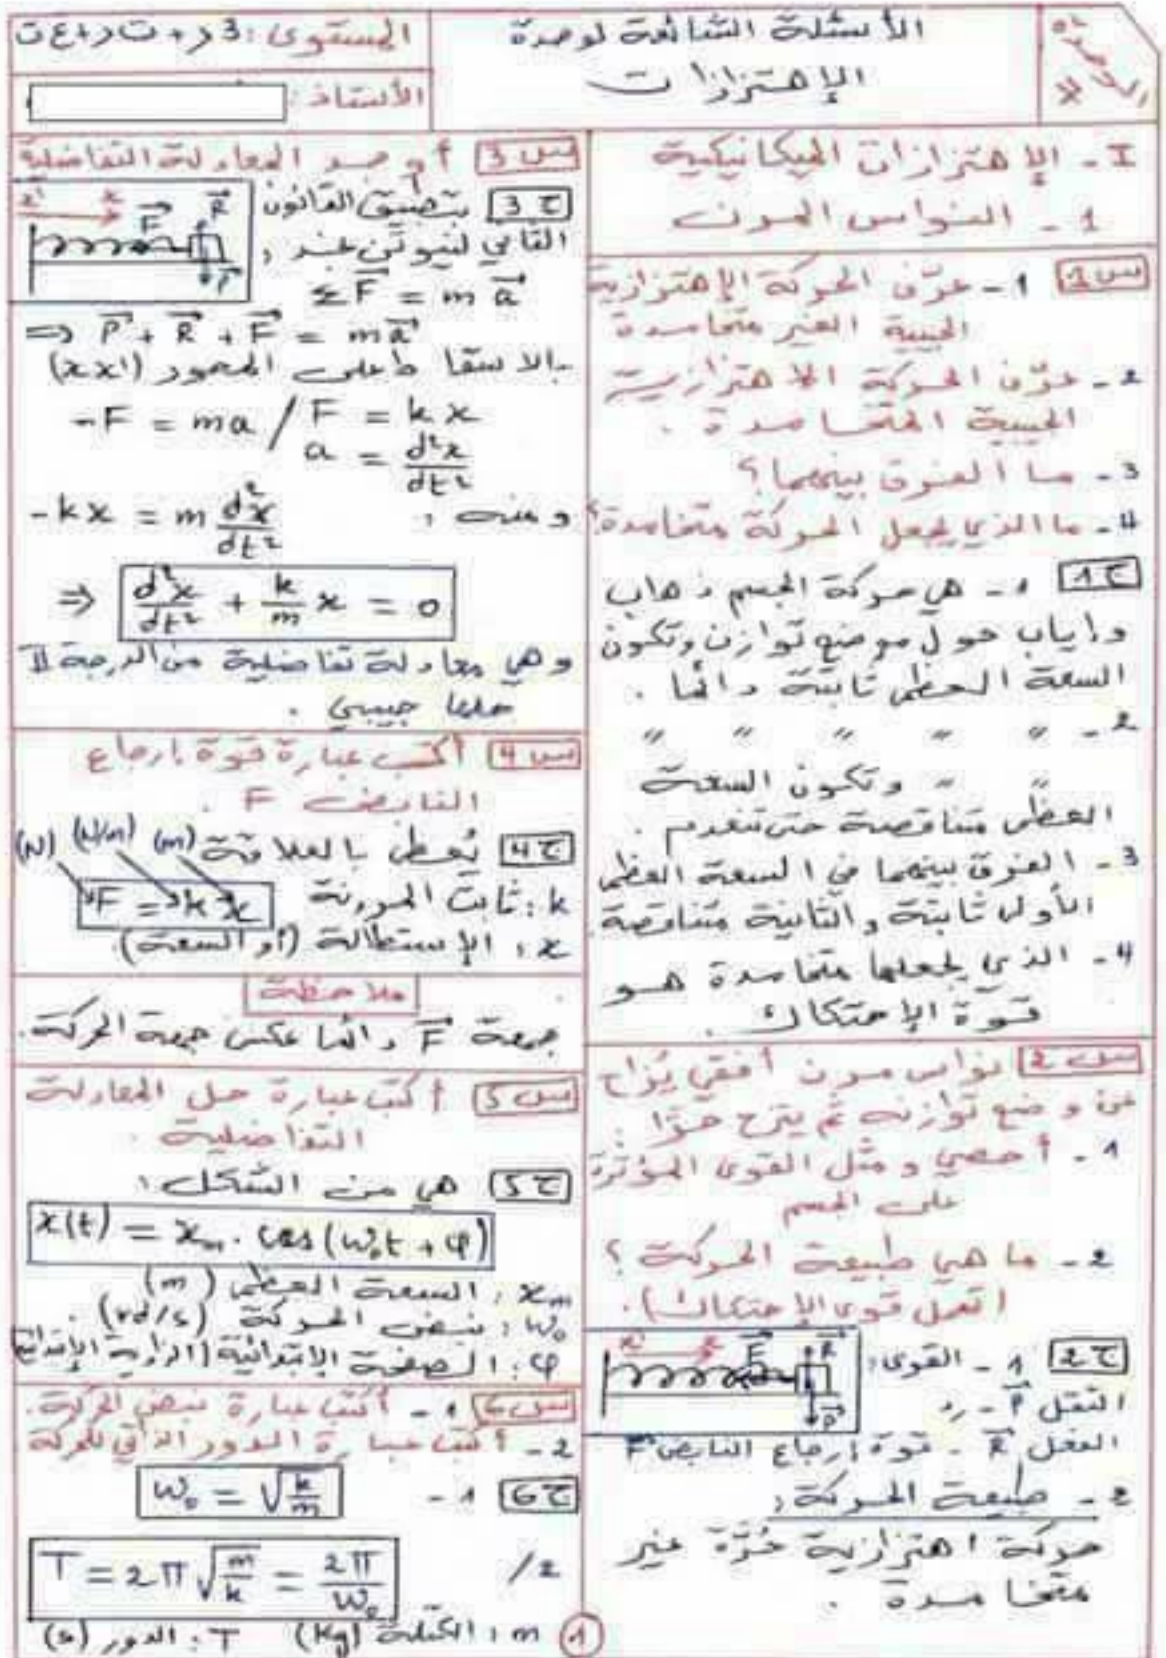 الوحدة
الأسئلة الشائعة لوحدة
الإهتزازات
المستوى: 3 ر + ت ر + ع ت
الأستاذ:
I - الإهتزازات الميكانيكية
1 - النواس المرن
س1 1 - عرّف الحركة الإهتزازية
الجيبية الغير متخامدة
2 - عرّف الحركة الاهتزازية
الجيبية المتخامدة .
3 - ما الفرق بينهما؟
4 - ما الذي يجعل الحركة متخامدة؟
ج1 1 - هي حركة الجسم ذهاب
وإياب حول موضع توازن وتكون
السعة العظمى ثابتة دائما .
2 - " " " " "
" " وتكون السعة
العظمى متناقصة حتى تنعدم .
3 - الفرق بينهما في السعة العظمى
الأولى ثابتة والثانية متناقصة.
4 - الذي يجعلها متخامدة هو
قوة الإحتكاك .
س2 نواس مرن أفقي يُزاح
عن وضع توازنه ثم يترك حرّا .
1 - أحصي ومثل القوى المؤثرة
على الجسم
2 - ما هي طبيعة الحركة ؟
(تهمل قوى الإحتكاك).
ج2 1 - القوى:
x' x F R P
الثقل P - رد
الفعل R - قوة إرجاع النابض F
2 - طبيعة الحركة:
حركة اهتزازية حُرّة غير
متخامدة .
س3 أوجد المعادلة التفاضلية
ج3 بتطبيق القانون
x' x F R P
الثاني لنيوتن نجد :
ΣF = m a
⇒ P + R + F = m a
بالاسقاط على المحور (xx')
-F = ma / F = kx
a = d²x/dt²
ومنه : -kx = m d²x/dt²
⇒ d²x/dt² + k/m x = 0
وهي معادلة تفاضلية من الدرجة II
حلها جيبي .
س4 أكتب عبارة قوة إرجاع
النابض F .
ج4 يُعطى بالعلاقة (m) (N/m) (N)
k : ثابت المرونة F = k x
x : الإستطالة (أو السعة).
ملاحظة
جهة F دائما عكس جهة الحركة.
س5 أكتب عبارة حل المعادلة
التفاضلية .
ج5 هي من الشكل :
x(t) = xₘ . cos(ω₀t + φ)
xₘ : السعة العظمى (m)
ω₀ : نبض الحركة (rd/s) .
φ : الصفحة الإبتدائية (الزاوية الإبتدائية)
س6 1 - أكتب عبارة نبض الحركة.
2 - أكتب عبارة الدور الذاتي للحركة
ج6 1 - ω₀ = √(k/m)
2/ T = 2π √(m/k) = 2π/ω₀
m : الكتلة (Kg) T : الدور (s)
1